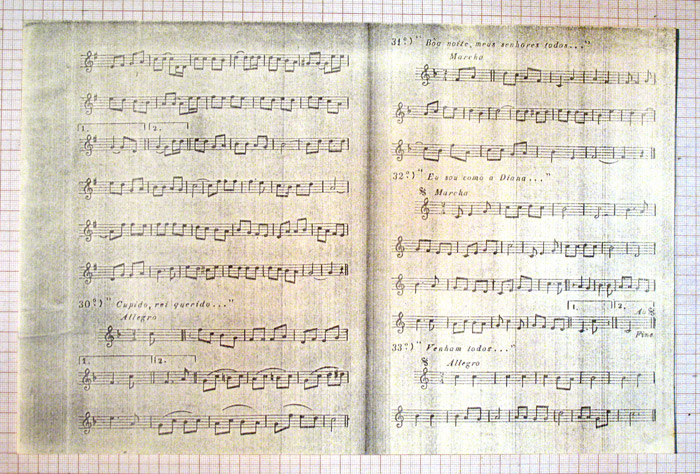 1.
2.
30º) "Cupido, rei querido..."
Allegro
1.
2.
31º) "Bôa noite, meus senhores todos..."
Marcha
32º) "Eu sou como a Diana..."
Marcha
1.
2.
Ao 𝄋
Fine
33º) "Venham todos..."
𝄋 Allegro